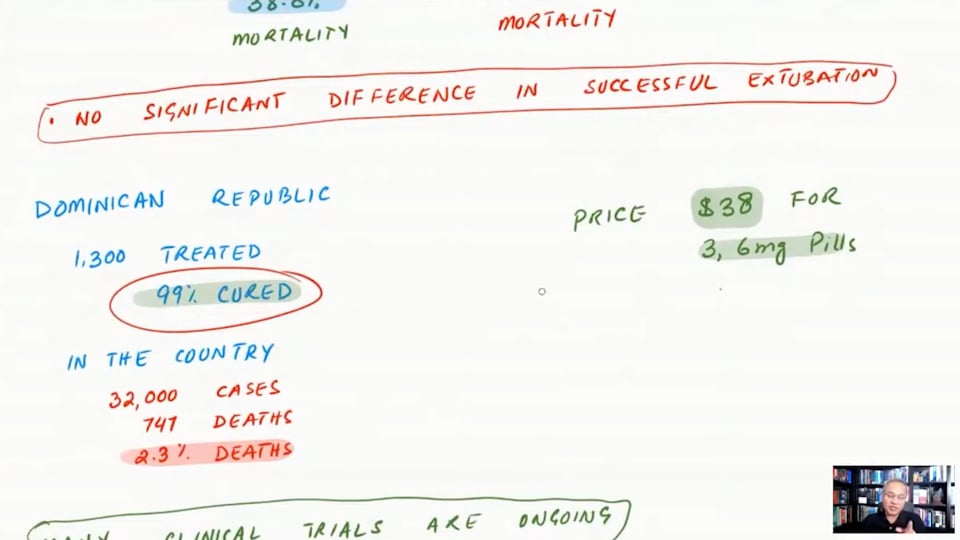 38.8%
MORTALITY
MORTALITY
• NO SIGNIFICANT DIFFERENCE IN SUCCESSFUL EXTUBATION
DOMINICAN REPUBLIC
1,300 TREATED
99% CURED
IN THE COUNTRY
32,000 CASES
747 DEATHS
2.3% DEATHS
PRICE $38 FOR
3, 6mg Pills
MANY CLINICAL TRIALS ARE ONGOING